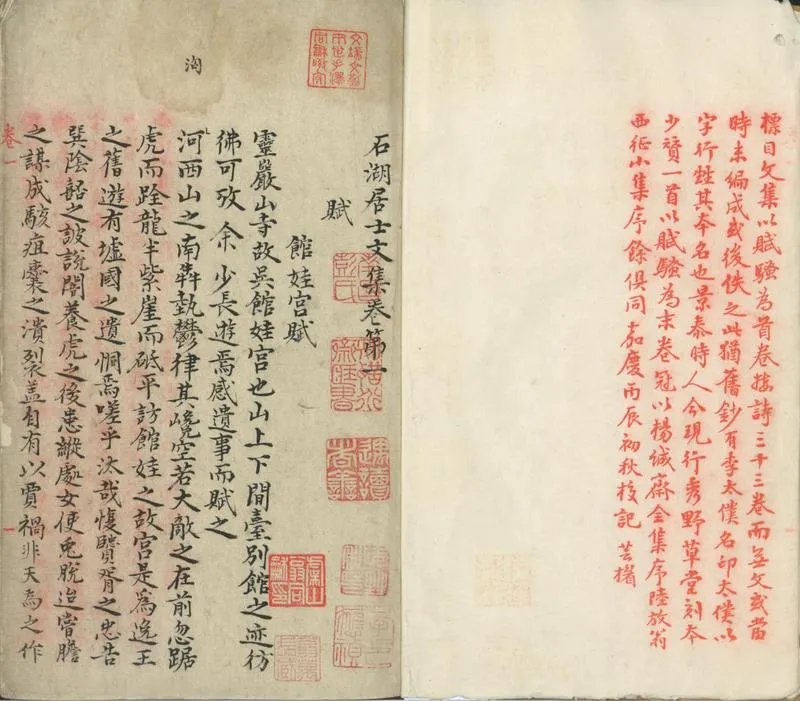 標目文集以賦騷為首卷接詩三十三卷而無文或當
時未編成或後佚之此猶舊鈔有李太僕名印太僕以
字行甡其本名也景泰時人今現行秀野草堂刻本
少賦一首以賦騷為末卷冠以楊誠齋全集序陸放翁
西征小集序餘俱同嘉慶丙辰初秋校記
石湖居士文集卷第一
賦
館娃宮賦
靈巖山寺故吳館娃宮也山上下閒臺別館之迹彷
彿可攷余少長遊焉感遺事而賦之
河西山之南犇埶鬱律其巉空若大敵之在前忽踞
虎而跧龍半紫崖而砥平訪館娃之故宮是為逸王
之舊遊有墟國之遺恫焉嗟乎汰哉愎賢胥之忠告
㢲陰謟之詖說闇養虎之後患縱處女使兎脫迨嘗膽
之謀成駭疽囊之潰裂盖自有以賈禍非天為之作
卷一
洶